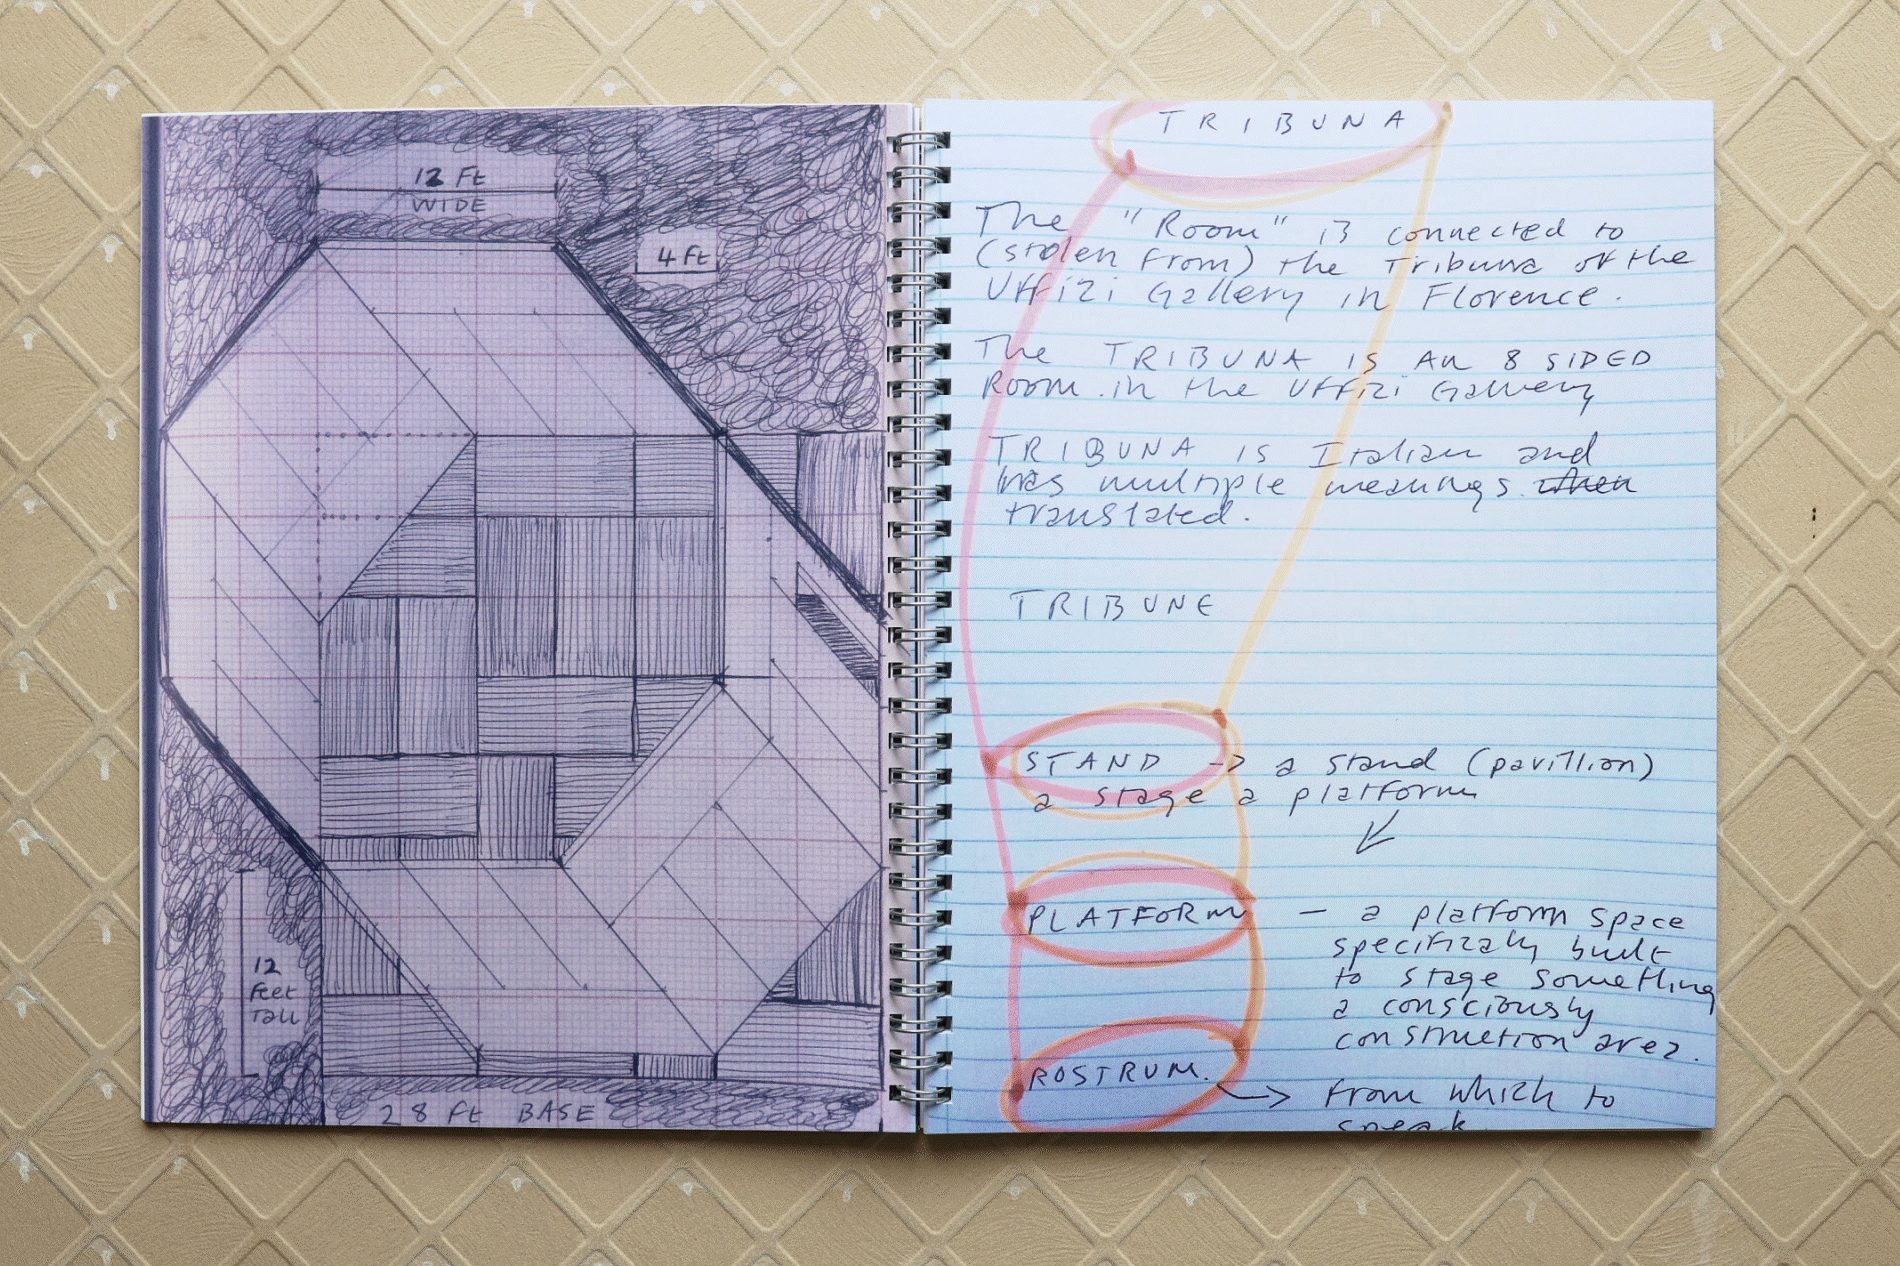 12 Ft
WIDE
4 Ft
12
Feet
Tall
28 Ft BASE
TRIBUNA
The "Room" is connected to
(stolen from) the Tribuna of the
Uffizi Gallery in Florence.
The TRIBUNA is an 8 SIDED
Room in the Uffizi Gallery
TRIBUNA is Italian and
has multiple meanings when
translated.
TRIBUNE
STAND -> a stand (pavillion)
a stage a platform
PLATFORM - a platform space
specifically built
to stage something
a consciously
construction area.
ROSTRUM. -> From which to
speak